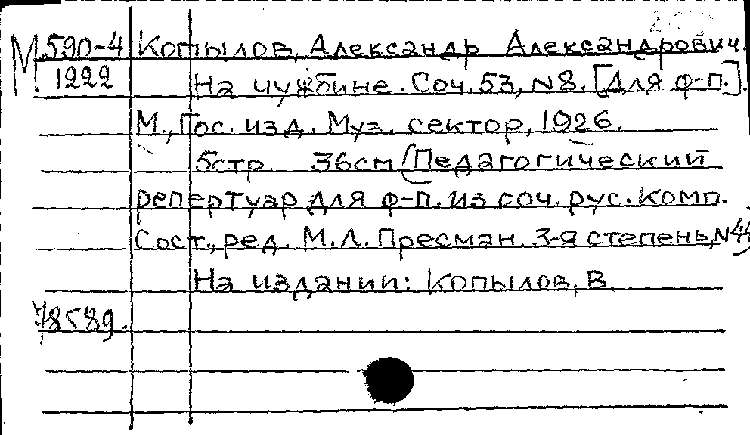 М 590-4 Копылов, Александр Александрович.
1222 На чужбине. Соч. 53, N8. [Для ф-п.].
М., Гос. изд. Муз. сектор, 1926.
5стр. 36см (Педагогический
репертуар для ф-п. из соч. рус. комп.
Сост., ред. М.Л. Пресман. 3-я степень, N
На издании: Копылов, В.
78589.